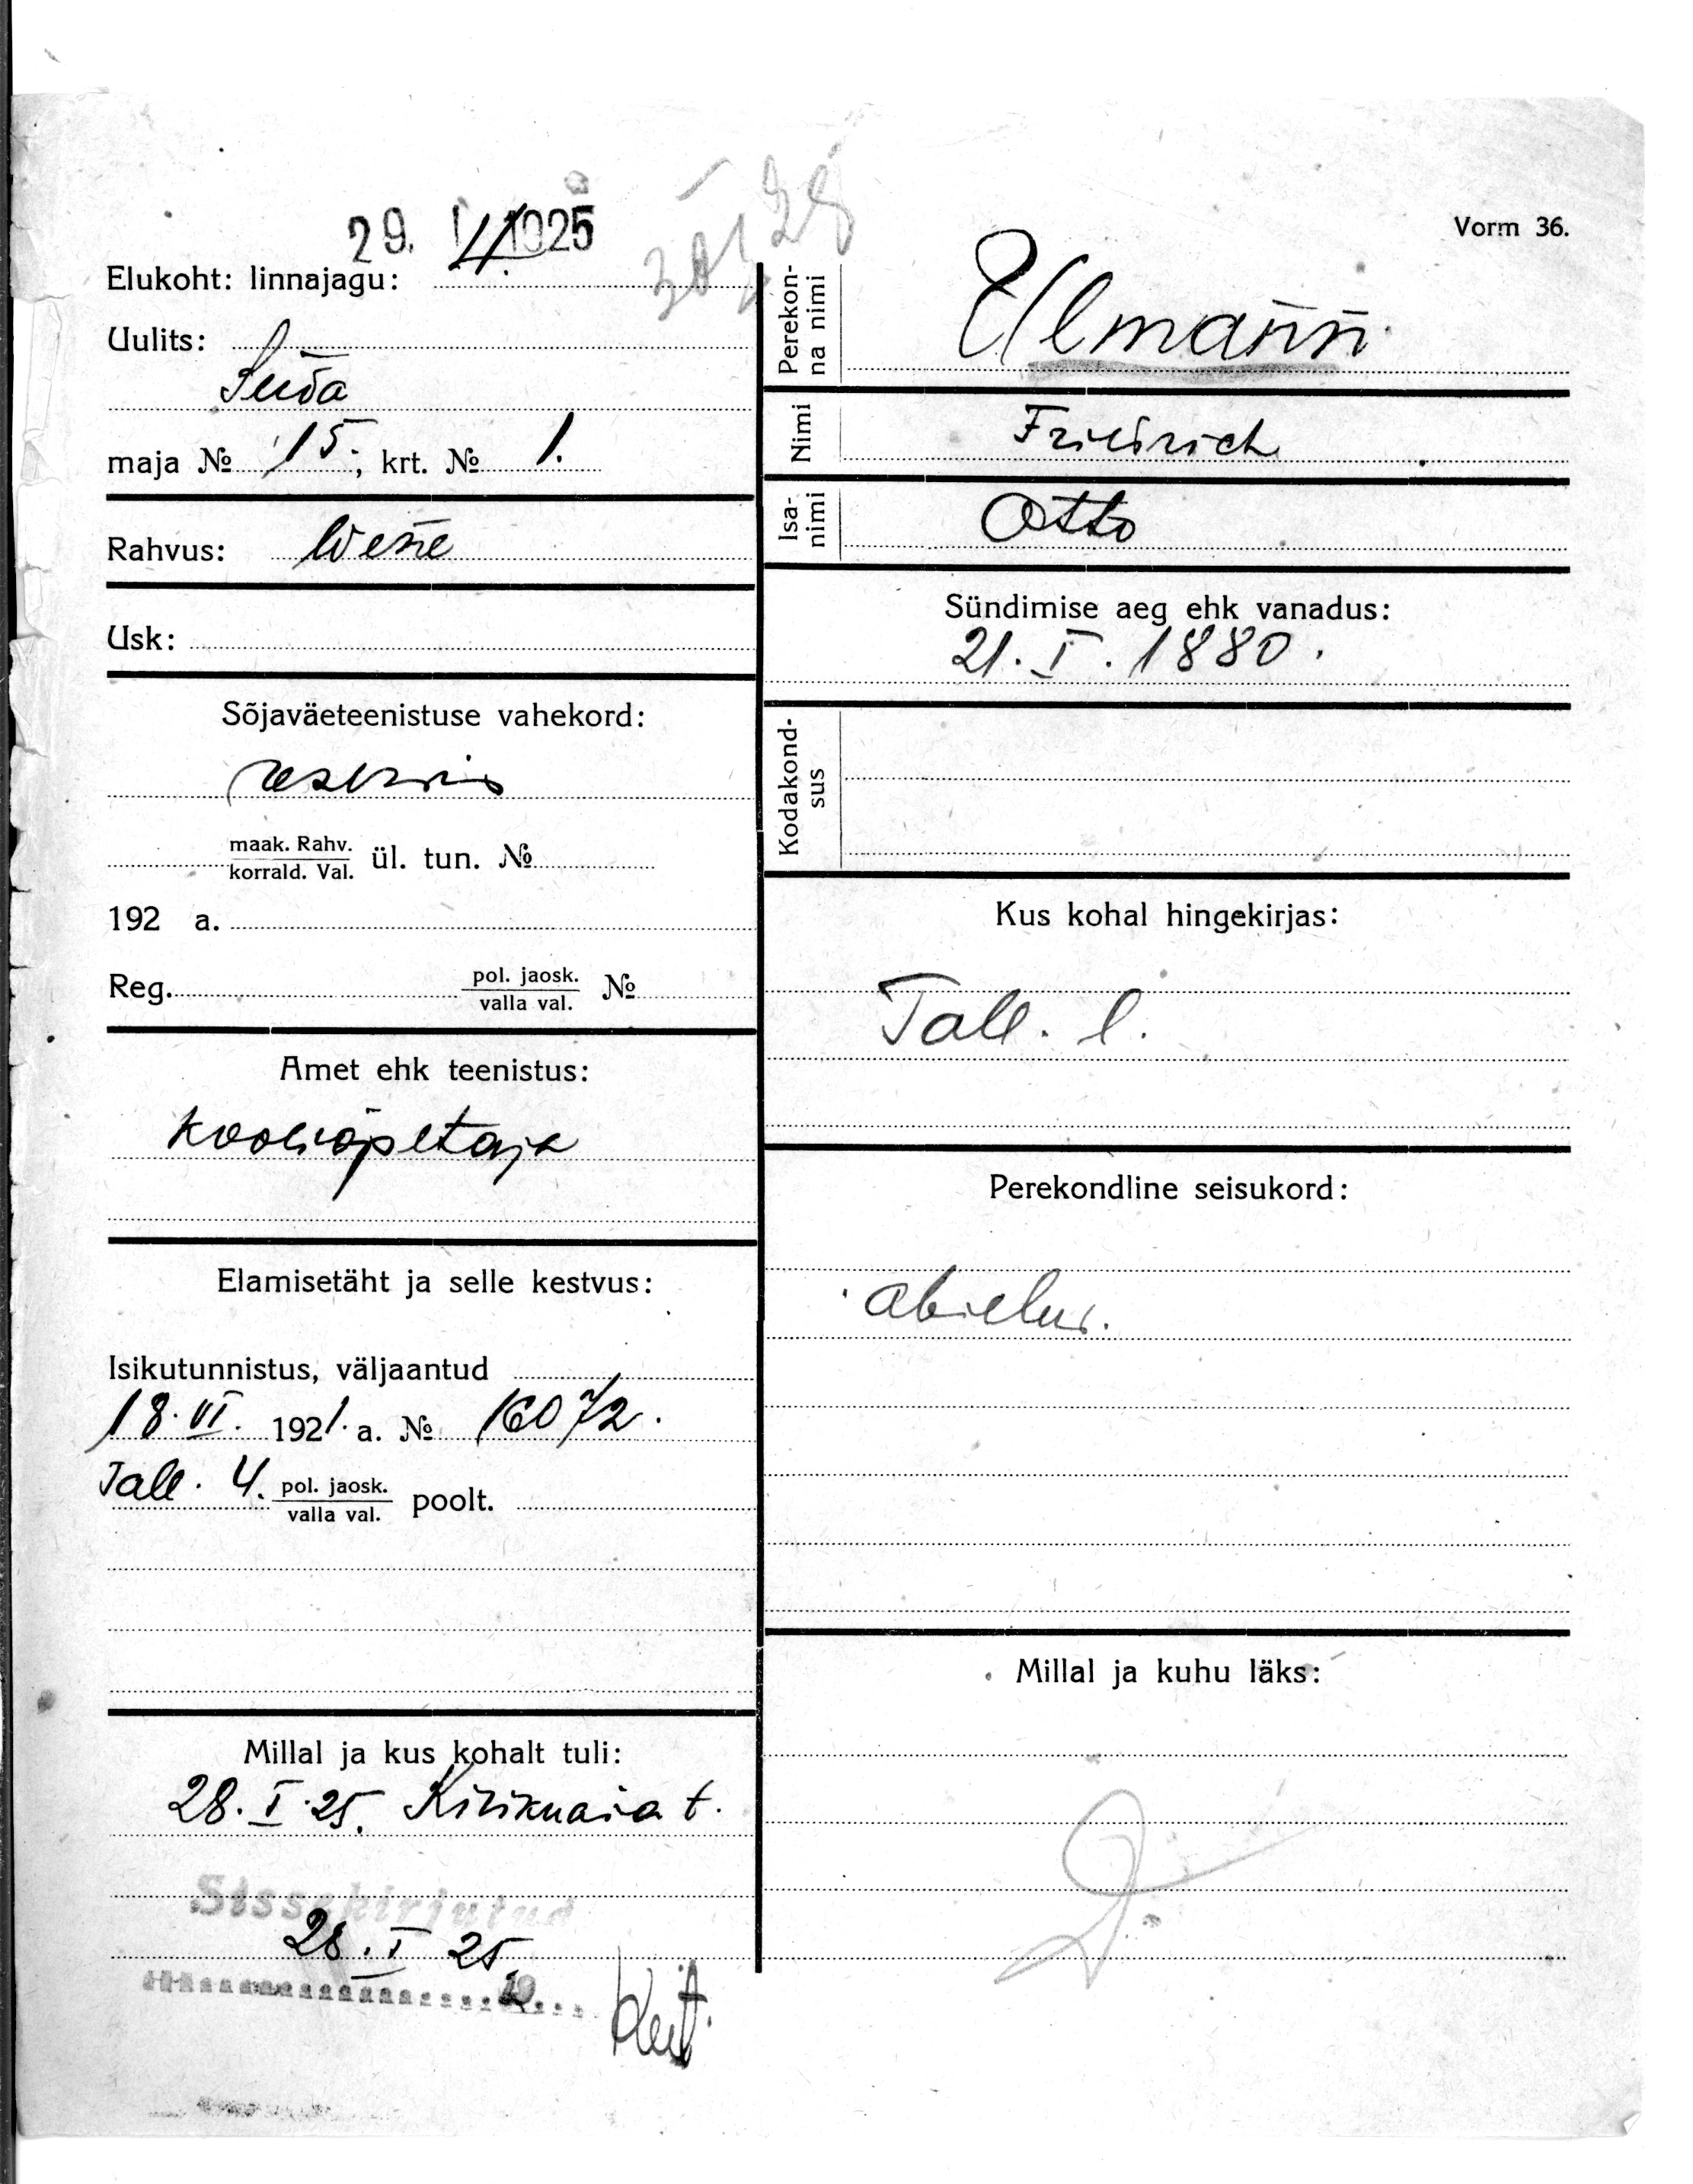 29. 1925
Vorm 36.
Elukoht: linnajagu: II.
Uulits:
Suda
maja № 15; krt. № 1.
Rahvus: Wene
Usk:
Sõjaväeteenistuse vahekord:
reservis
maak. Rahv.
korrald. Val. ül. tun. №
192 a.
Reg. pol. jaosk. №
valla val.
Amet ehk teenistus:
Kooliõpetaja
Elamisetäht ja selle kestvus:
Isikutunnistus, väljaantud
18. VI. 1921. a. № 16072.
Tall. 4. pol. jaosk. poolt.
valla val.
Millal ja kus kohalt tuli:
28. I. 25. Kirikuaia t.
Sissekirjutud
28. I 25.
Perekon-
na nimi Ulmann
Nimi Friedrich
Isa-
nimi Otto
Sündimise aeg ehk vanadus:
21. I. 1880.
Kodakond-
sus
Kus kohal hingekirjas:
Tall. l.
Perekondline seisukord:
abielus.
Millal ja kuhu läks: